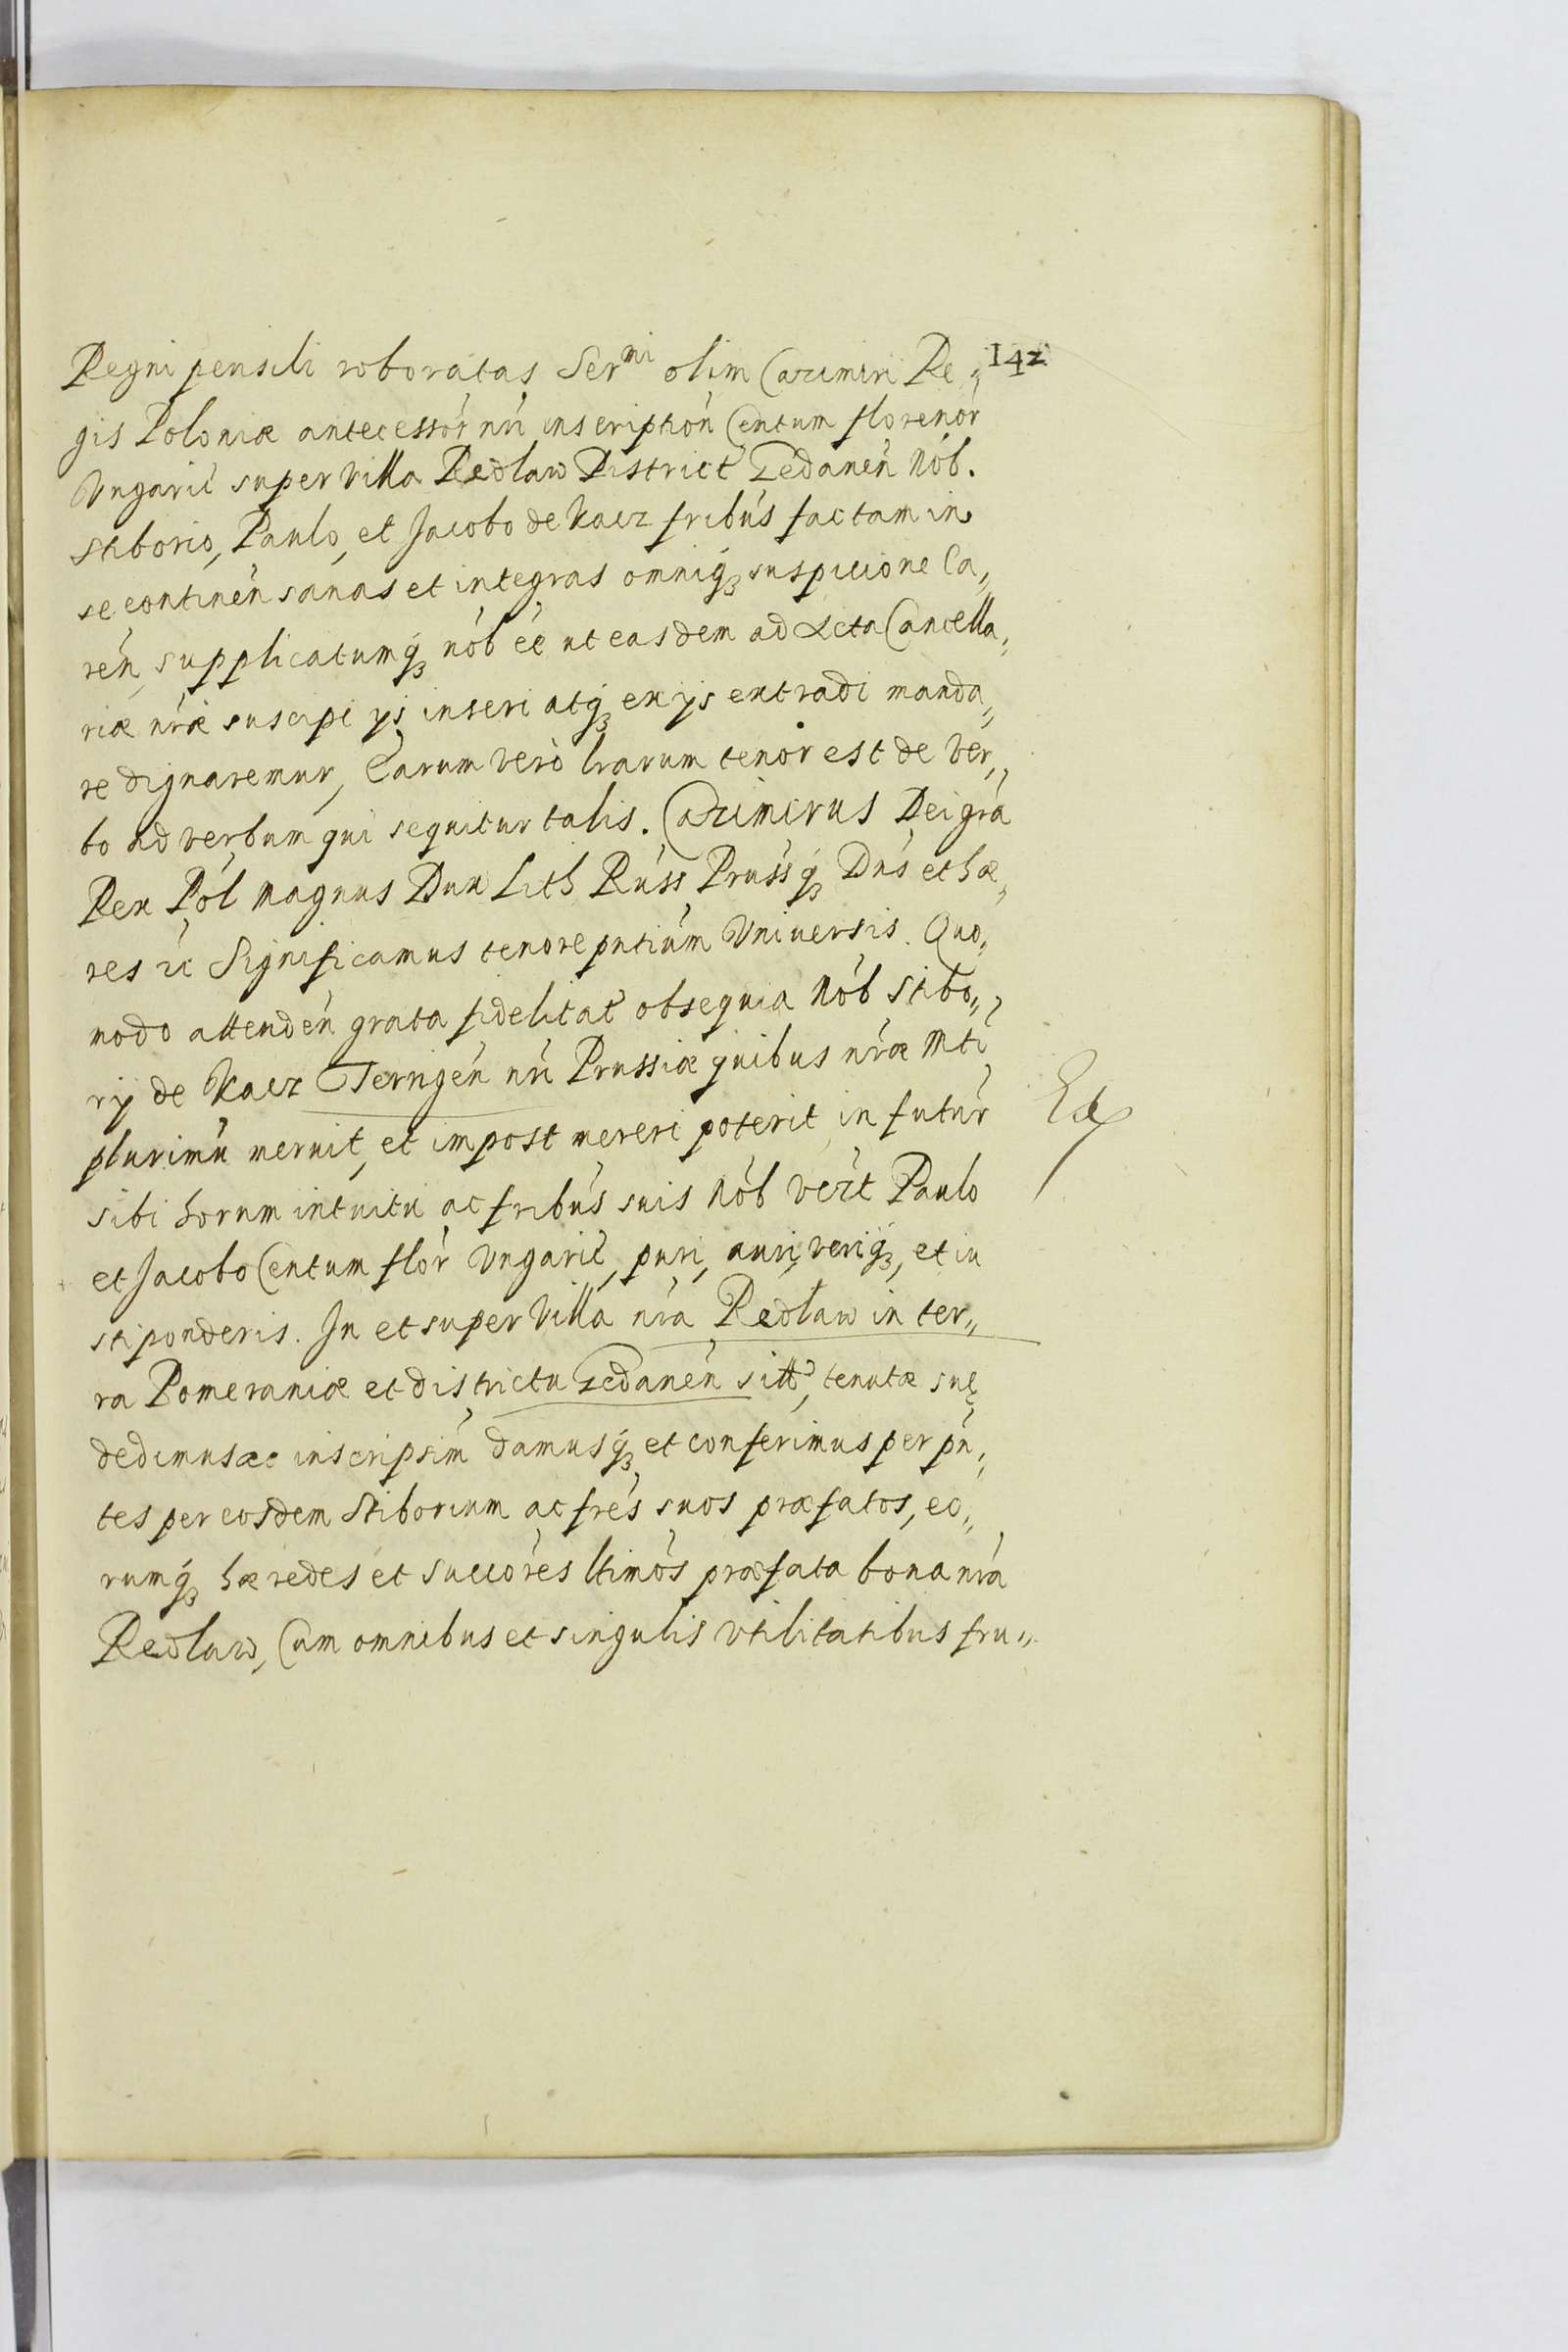 142
Regni pensili roboratas Ser^ni olim Cazimiri Re„
gis Poloniæ antecessór nri inscriptión Centum florenór
Vngaric super villa Redlaw District Gedanén Nób.
Stiborio, Paulo, et Jacobo de Kacz fribús factam in
se continén sanas et integras omniq́ꝫ suspicione Ca„
rén, supplicatumq́ꝫ nób eé ut easdem ad Acta Cancella„
riæ nræ suscipi ijs inseri atq́ꝫ ex ijs extradi manda„
re dignaremur, Earum verò lrarum tenor est de ver„
bo ad verbum qui sequitur talis. Cazimirus Dei grà
Rex Pól Magnus Dux Lith Rúss Prússq́ꝫ Dńs et hæ„
res &c Significamus tenore pntiúm Vniuersis. Quo„
modo attendén grata fidelitat obsequia Nób Stibo„
rij de Kacz Terrigén nri Prussiæ quibus nræ Mti
plurimũ meruit, et impost mereri poterit in futúr
sibi horum intuitu ac fribús suis Nób vért Paulo
et Jacobo Centum flór Vngaric, puri, auri, veriq́ꝫ, et iu
sti ponderis. In et super Villa nrà Redlaw in ter„
ra Pomeraniæ et districtu Gedanén sitt, tenutæ suę
dedimus ac inscripsim damusq́ꝫ et conferimus per pn„
tes per eosdem Stiborium ac frés suos præfatos, eo„
rumq́ꝫ hæredes et succóres ltimós præfata bona nrà
Redlaw, Cum omnibus et singulis vtilitatibus fru„